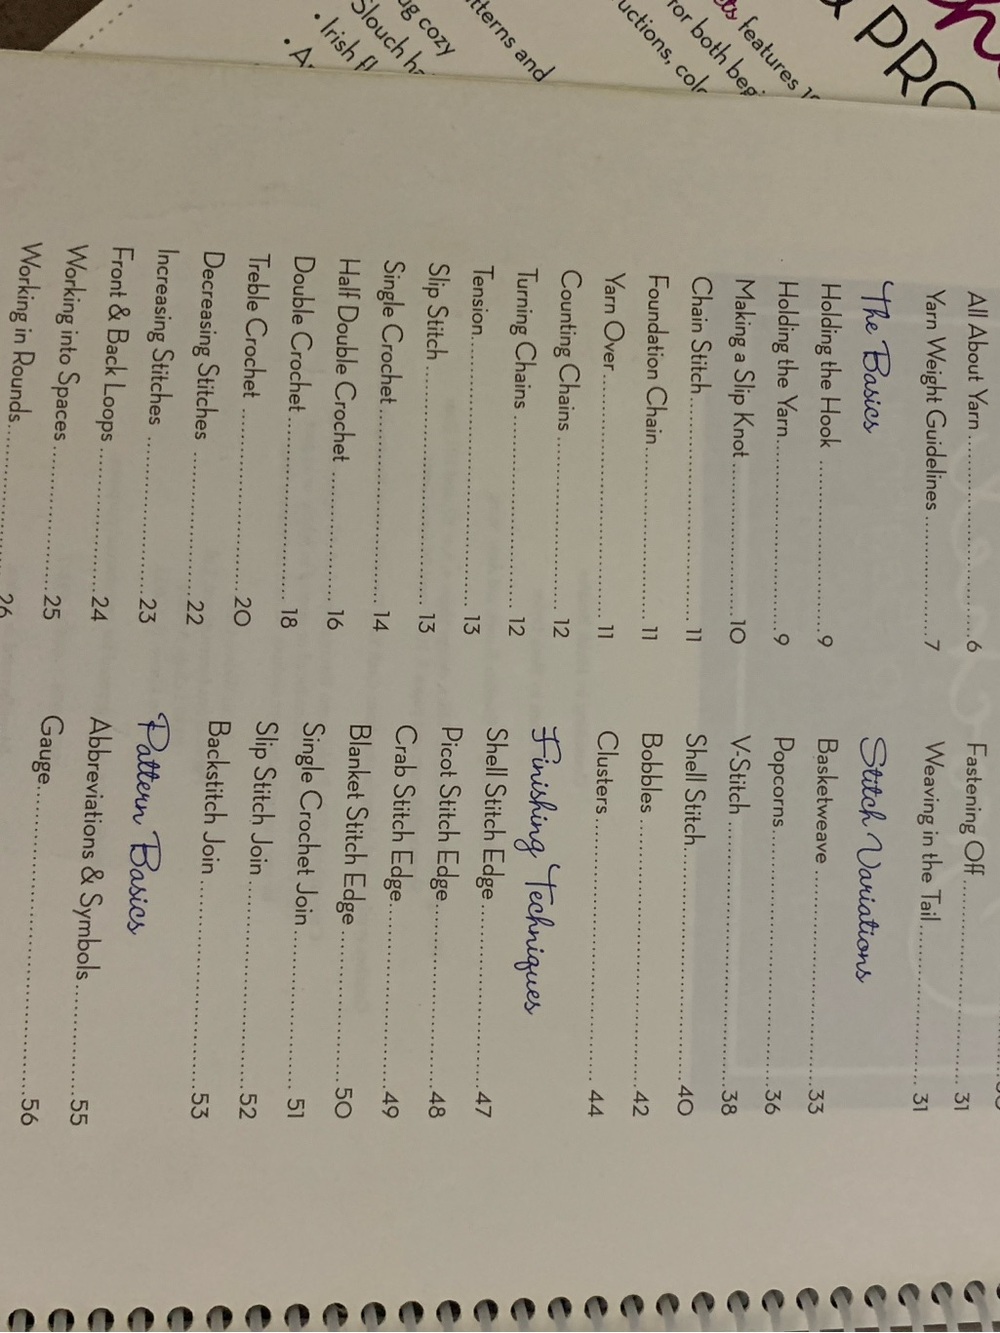 All About Yarn.......................6
Yarn Weight Guidelines..............7
The Basics
Holding the Hook....................9
Holding the Yarn....................9
Making a Slip Knot..................10
Chain Stitch........................11
Foundation Chain....................11
Yarn Over...........................11
Counting Chains.....................12
Turning Chains......................12
Tension.............................13
Slip Stitch.........................13
Single Crochet......................14
Half Double Crochet.................16
Double Crochet......................18
Treble Crochet......................20
Decreasing Stitches.................22
Increasing Stitches.................23
Front & Back Loops..................24
Working into Spaces.................25
Working in Rounds...................26
Fastening Off.......................31
Weaving in the Tail.................31
Stitch Variations
Basketweave.........................33
Popcorns............................36
V-Stitch............................38
Shell Stitch........................40
Bobbles.............................42
Clusters............................44
Finishing Techniques
Shell Stitch Edge...................47
Picot Stitch Edge...................48
Crab Stitch Edge....................49
Blanket Stitch Edge.................50
Single Crochet Join.................51
Slip Stitch Join....................52
Backstitch Join.....................53
Pattern Basics
Abbreviations & Symbols.............55
Gauge...............................56
features
for both
terns and
cozy
Slouch
• Irish